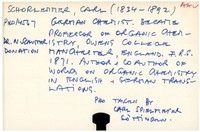 SCHORLEMMER, CARL (1834-1892)
GERMAN CHEMIST. BECAME
PROFESSOR OF ORGANIC CHEM-
ISTRY, OWENS COLLEGE
DONATION MANCHESTER ENGLAND. F.R.S.
1871. AUTHOR & CO AUTHOR OF
WORKS ON ORGANIC CHEMISTRY
IN ENGLISH & GERMAN TRANS-
LATIONS.
PHO TAKEN BY
CARL
GÖTTINGEN.